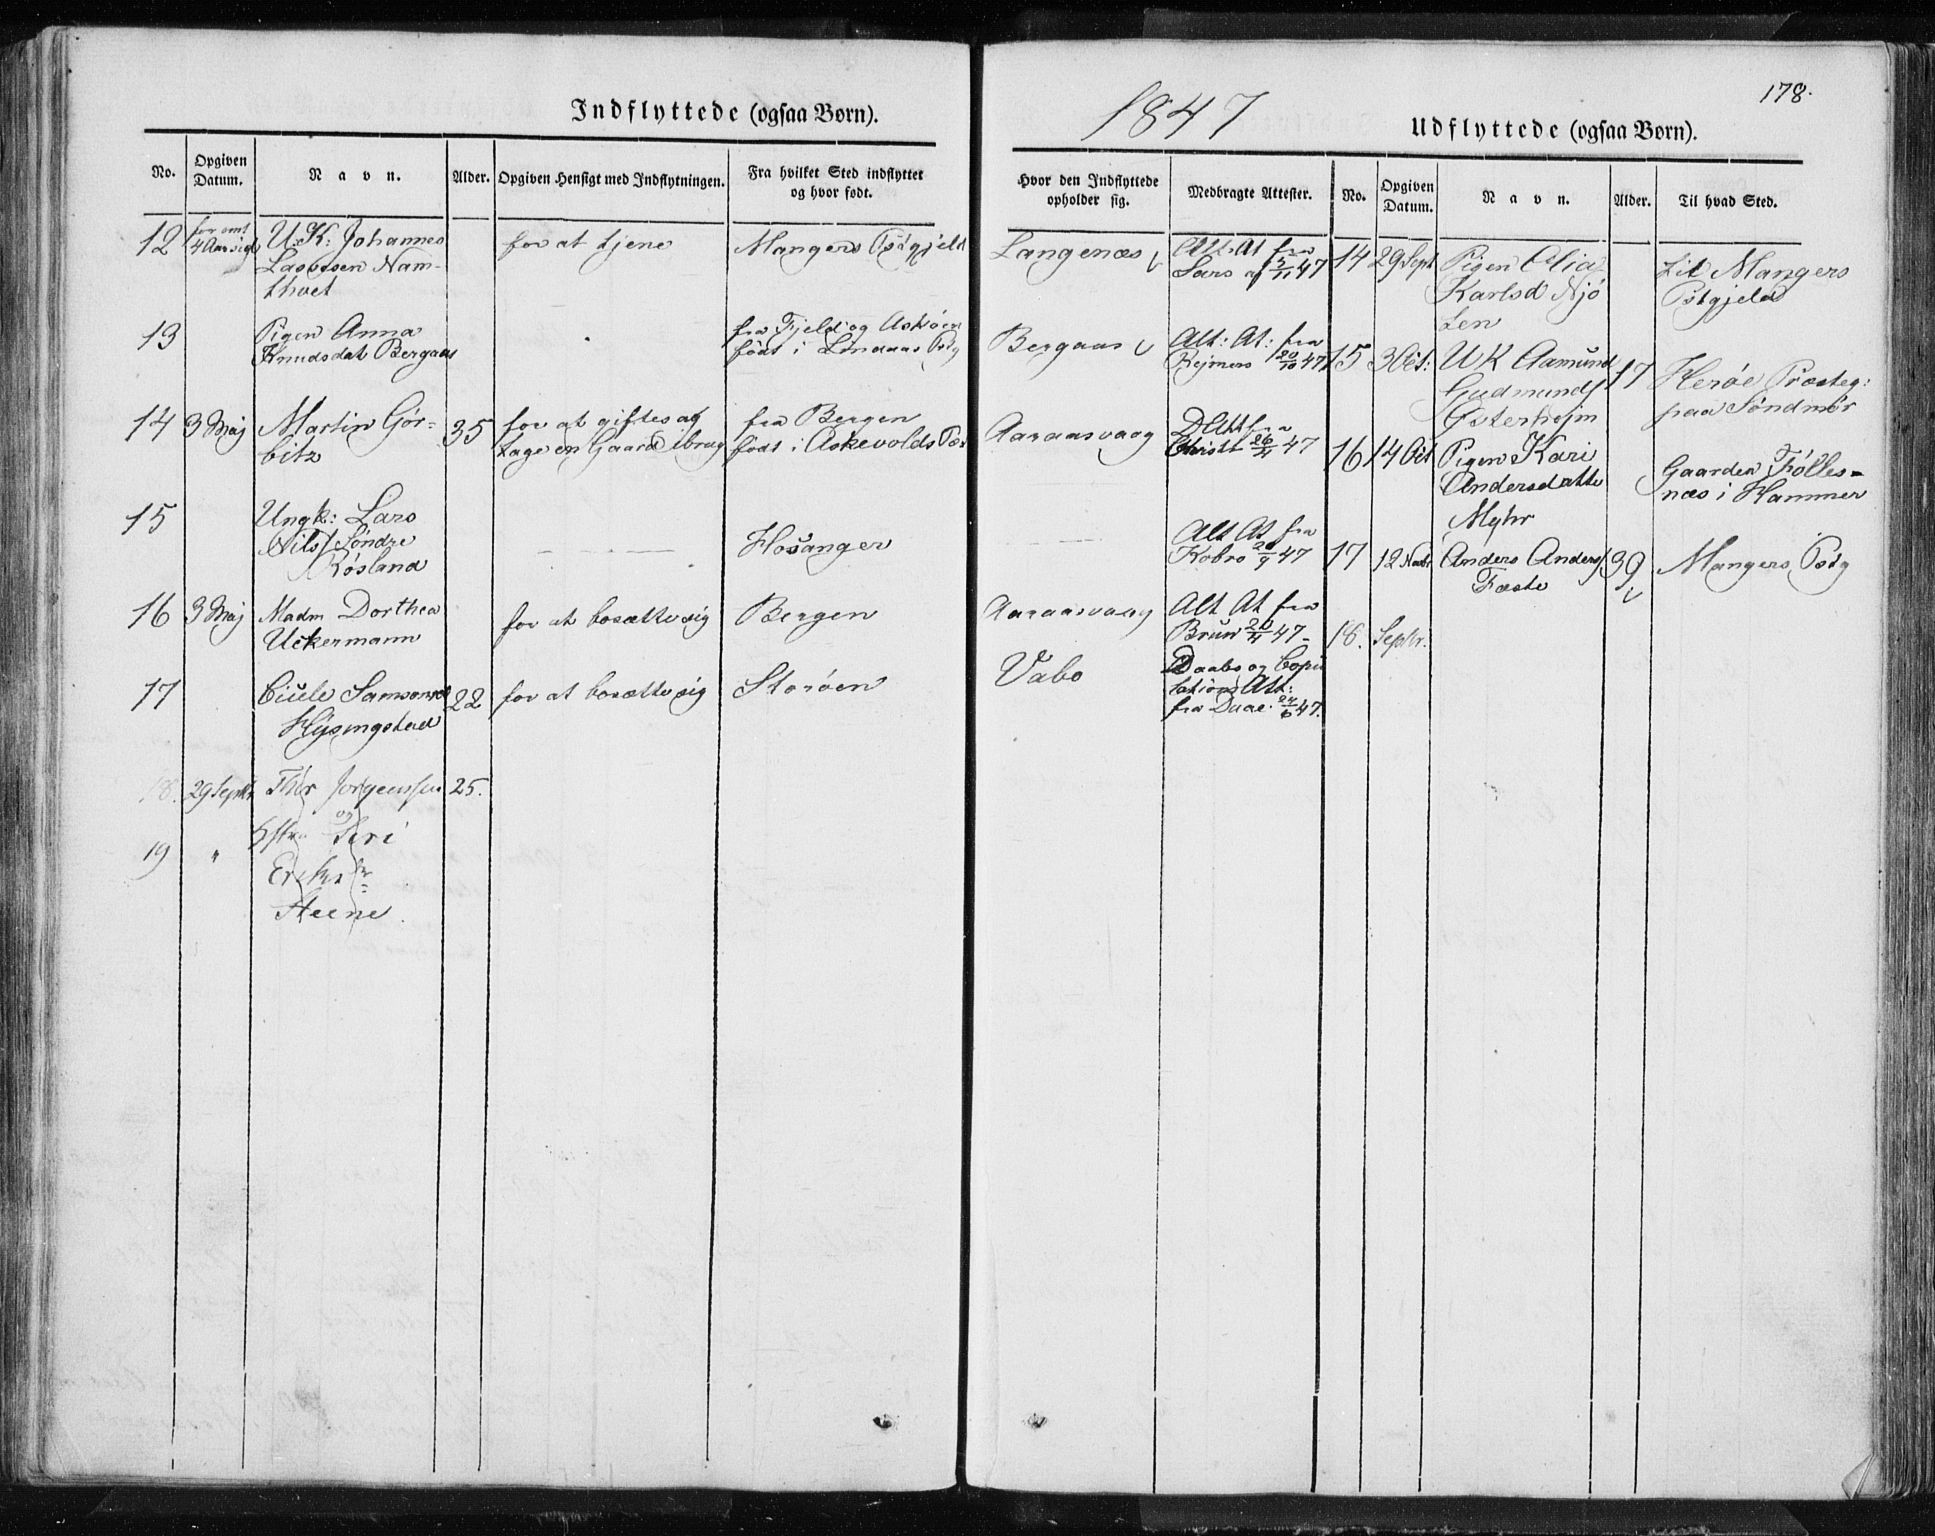 178.
1847
Indflyttede (ogsaa Børn).
No.
Opgiven
Datum.
Navn.
Alder.
Opgiven Hensigt med Indflytningen.
Fra hvilket Sted indflyttet
og hvor født.
Hvor den Indflyttede
opholder sig.
Medbragte Attester.
12
for omt
4 Aar sid
U:K: Johannes
Lassesen Nam-
thvet
for at tjene
Mangers Pstgjeld
Langenæs
Att: At fra
Lars af 5/11 47
13
Pigen Anna
Knudsdat Bergaas
fra Fjeld og Askøen
født i Lindaas Pstg
Bergaas
Att: At: fra
Rejmers 20/10 47
14
3 Maj
Martin Gør=
bitz
35
for at giftes og
tage en Gaard ibrug
fra Bergen
født i Askevolds Pst
Aaraasvaag
D Att fra
26/4 47
15
Ungk: Lars
Nils/ Søndre
Røsland
Hosanger
Att At fra
Kobro 20/9 47
16
3 Maj
Madm Dorthea
Uckermann
for at bosætte sig
Bergen
Aaraasvaag
Att At fra
Brun 20/4 47-
17
Cicele Samsonsd
Hysingstad
22
for at bosætte sig
Storøen
Vabo
Daabs og Copu
lations Att:
fra Daae 24/6 47.
18.
29 Septr
Thor Jørgenssen
25.
19
"
og
Hstr Seri
Steene.
Udflyttede (ogsaa Børn).
No.
Opgiven
Datum.
Navn.
Alder.
Til hvad Sted.
14
29 Sept
Pigen Olia
Karlsd Njø
ten
til Mangers
Pstgjeld
15
3 Oct:
U K Aamund
Gudmunds/
Østerhejm
17
Herøe Præsteg:
paa Søndmør
16
14 Oct
Pigen Kari
Andersdatte
Myhr
Gaarden Følles=
næs i Hammer
17
12 Novb
Anders Anders/
Fæste
39
Mangers Pstg
18.
Septbr.